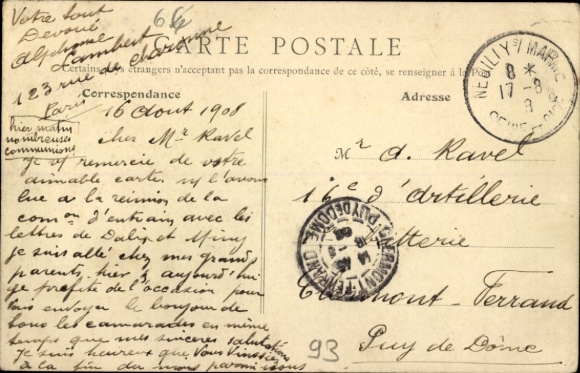 Votre tout
Dévoué
Alphonse Lambert
123 rue de Charonne
Paris
64
CARTE POSTALE
Certains pays étrangers n'acceptant pas la correspondance de ce côté, se renseigner à la Poste
Correspondance
Adresse
16 Aout 1908
hier matin
nombreuses
communions
Cher Mr Ravel
Je vs remercie de votre
aimable carte, ns l'avons
lue a la réunion de la
comon d'entrain, avec les
lettres de et
je suis allé chez mes grands
parents, hier, & aujourd'hui
je profite de l'occasion pour
vous envoyer le bonjour de
tous les camarades en même
temps que mes sincères salutations
Je suis heureux que vous
à la fin du mois parmi nous
Mr A. Ravel
16e d'Artillerie
Batterie
Clermont-Ferrand
Puy de Dôme
NEUILLY S/ MARNE
8 *
17 -8
8
SEINE-ET-OISE
CLERMONT-FERRAND
PUY DE DOME
93